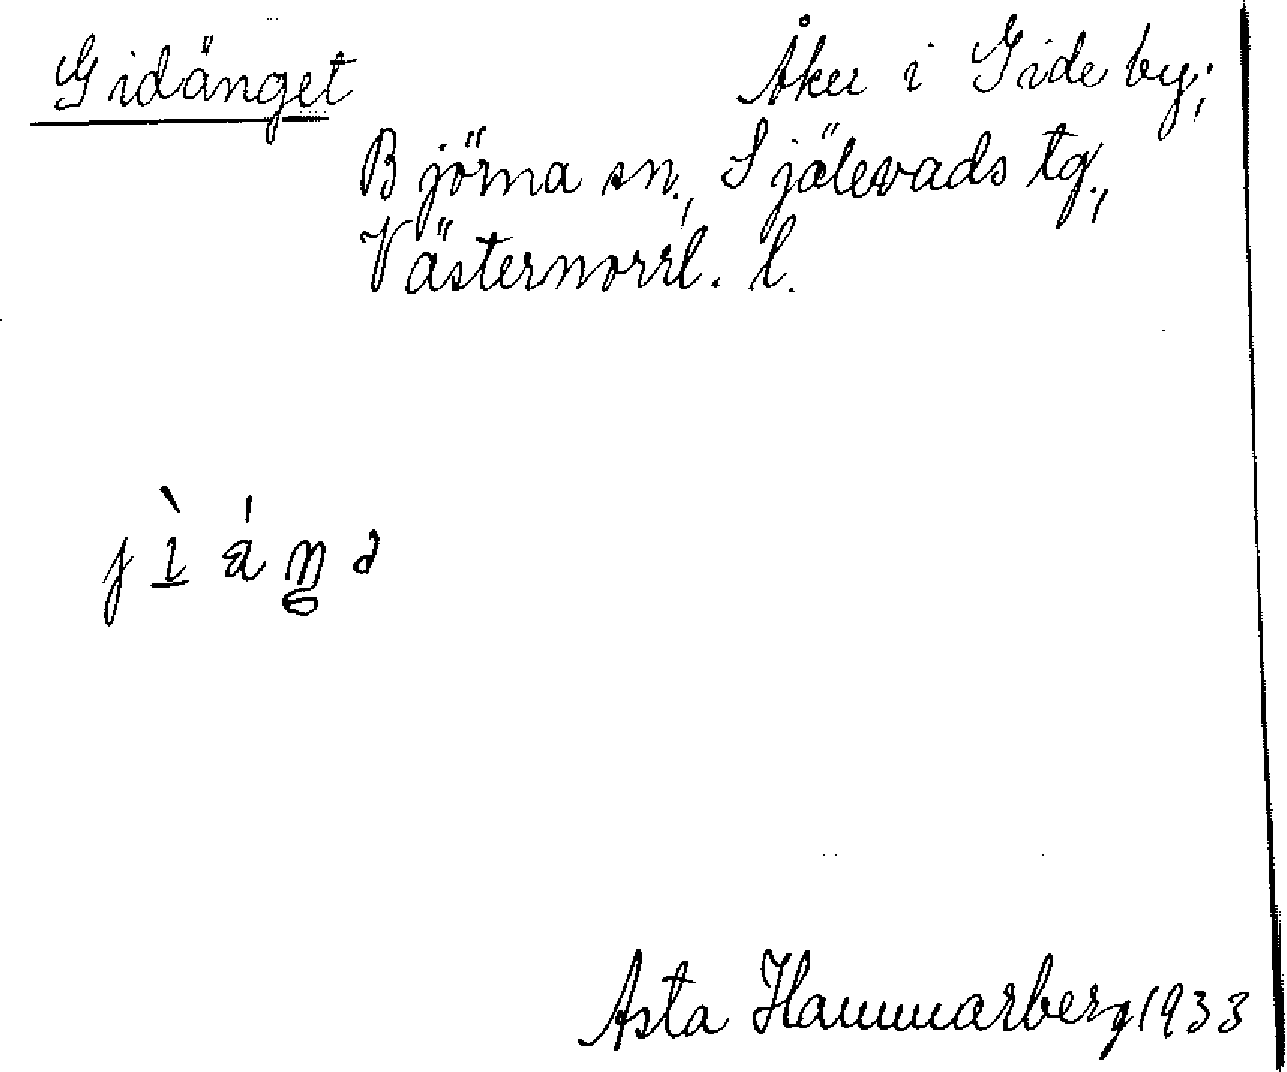 Gidänget Åker i Gide by;
Björna sn., Själevads tg.,
Västernorrl. l.
Asta Hammarberg 1933